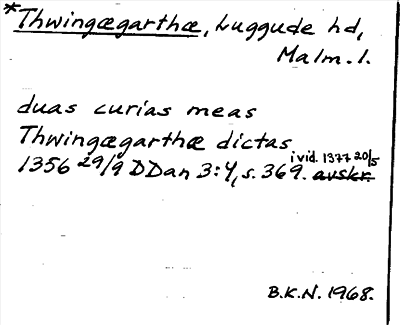 *Thwingægarthæ, Luggude hd,
Malm. l.
duas curias meas
Thwingægarthæ dictas
i vid. 1377 20/5
1356 29/9 DDan 3:4, s. 369. avskr.
B.K.N. 1968.